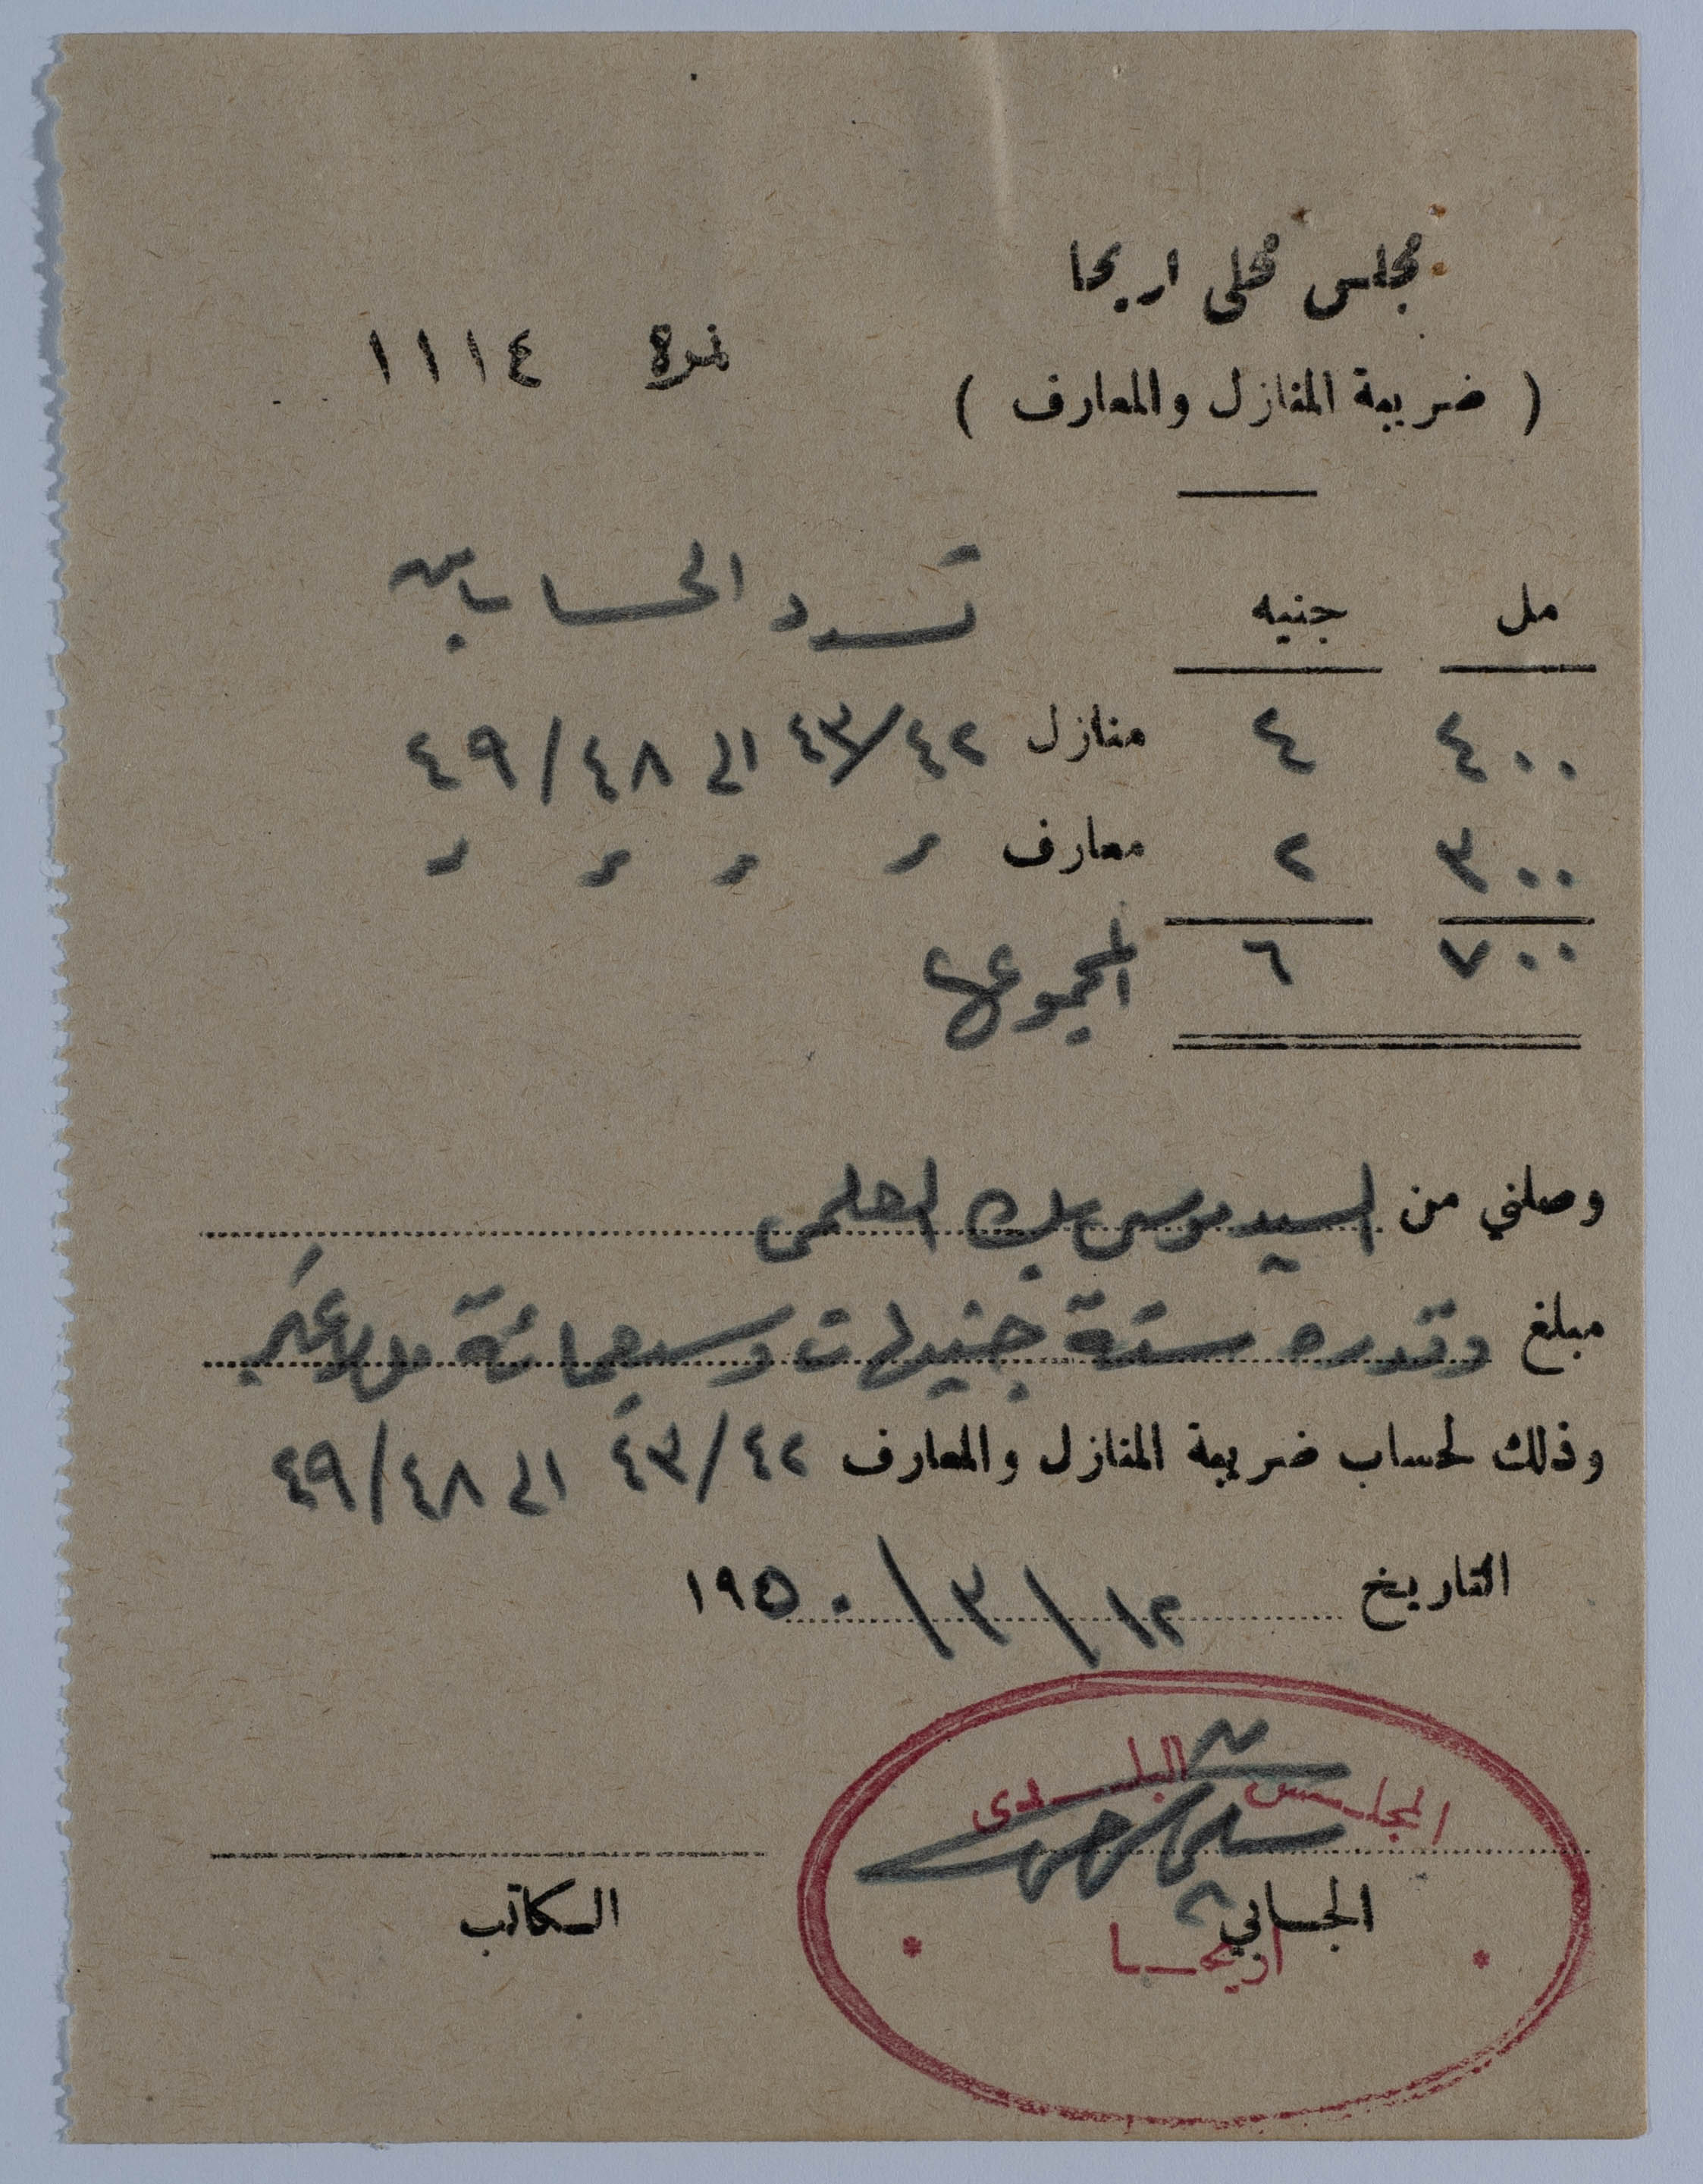 مجلس محلي اريحا
نمرة ١١١٤
( ضريبة المنازل والمعارف )
تسدد الحسابين
مل جنيه
٤٠٠ ٤ منازل ٤٣/٤٢ الى ٤٩/٤٨
٣٠٠ ٢ معارف " " " "
٧٠٠ ٦ المجموع
وصلني من السيد موسى بك العلمي
مبلغ وقدره ستة جنيهات وسبعمائة مل لاغير
وذلك لحساب ضريبة المنازل والمعارف ٤٣/٤٢ الى ٤٩/٤٨
التاريخ ١٢/٣/١٩٥٠
المجلس البلدي
الجابي الكاتب
اريحا